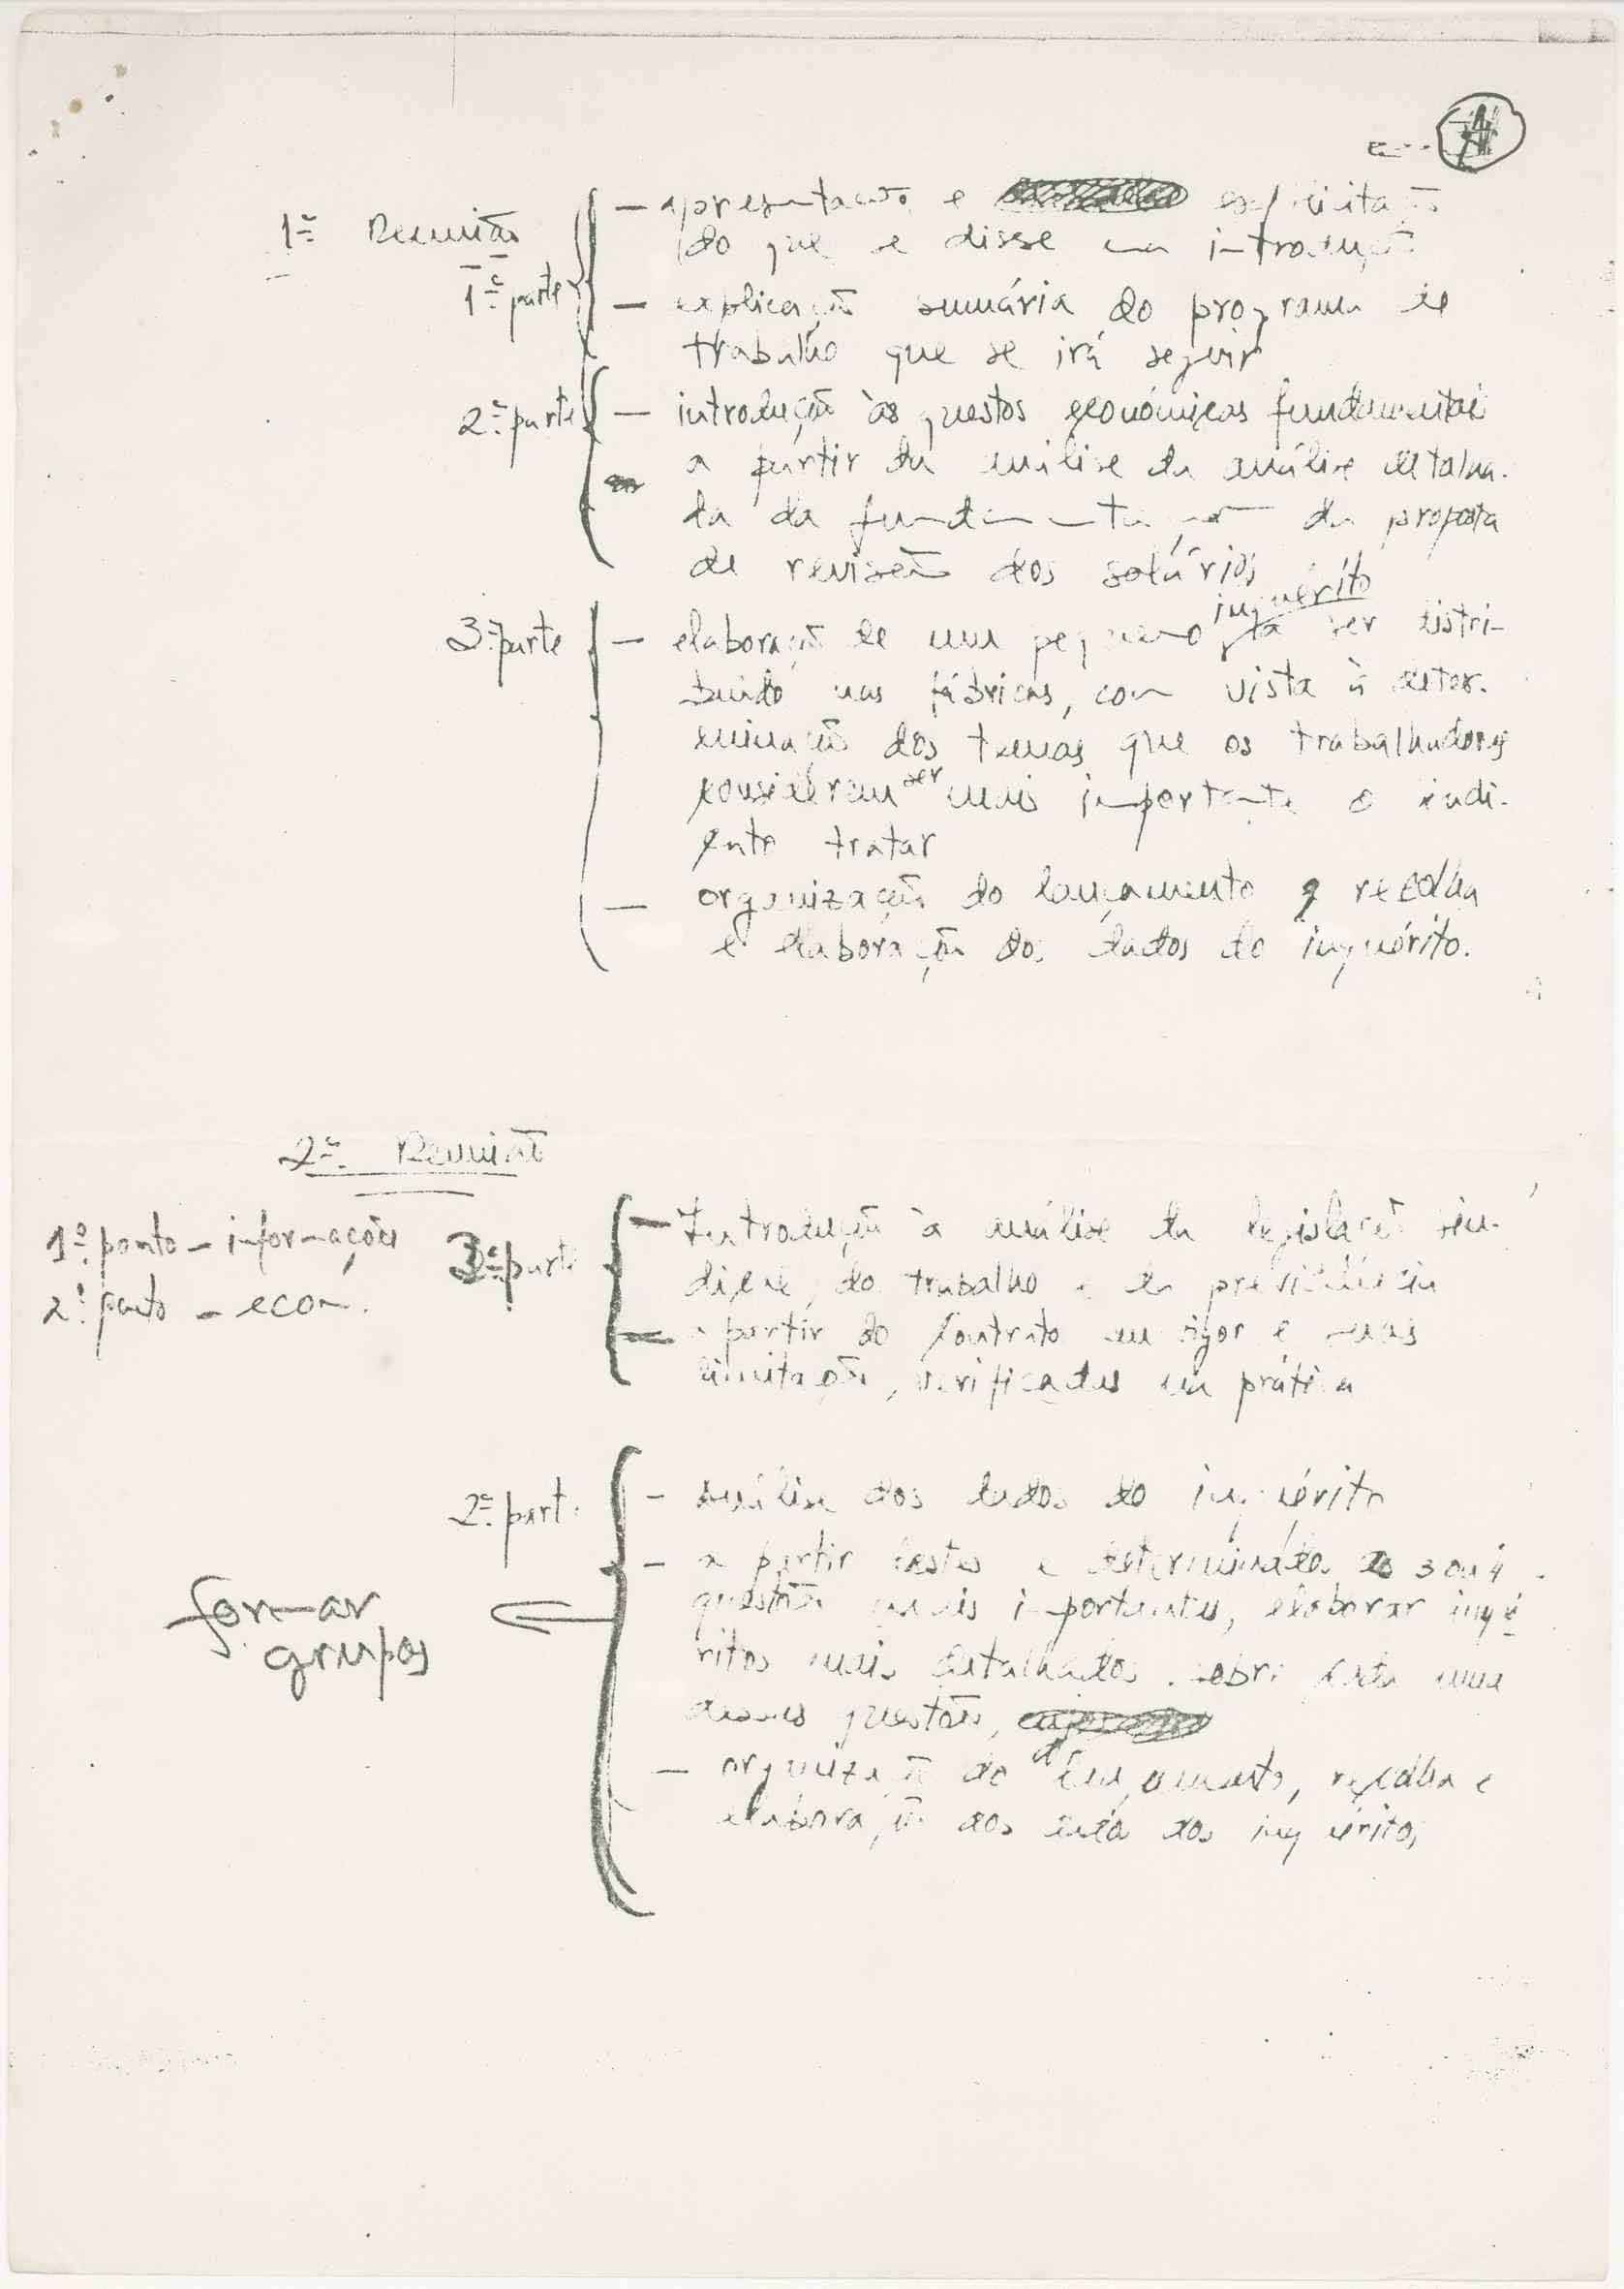 1ª Reunião
1ª parte
— apresentação e explicitação
do que se disse na introdução
— explicação sumária do programa de
trabalho que se irá seguir
2ª parte
— introdução às questos económicas fundamentais
a partir da análise da análise detalha-
da da fundamentação da proposta
de revisão dos salários
3ª parte
— elaboração de um pequeno inquérito a ser distri-
buido nas fábricas, com vista à deter-
minação dos temas que os trabalhadores
considerem ser mais importante o sindi-
cato tratar
— organização do lançamento e recolha
e elaboração dos dados do inquérito.
2ª Reunião
1º ponto - informações
2º ponto - econ.
3ª parte
— Introdução à análise da legislação sin-
dical, do trabalho e da previdência
a partir do contrato em vigor e suas
limitações, verificadas na prática
2ª parte
- análise dos dados do inquérito
- a partir destes e determinadas as 3 ou 4
questões mais importantes, elaborar inqué
ritos mais detalhados sobre cada uma
dessas questões,
- organização do lançamento, recolha e
elaboração dos dados dos inquéritos
formar
grupos